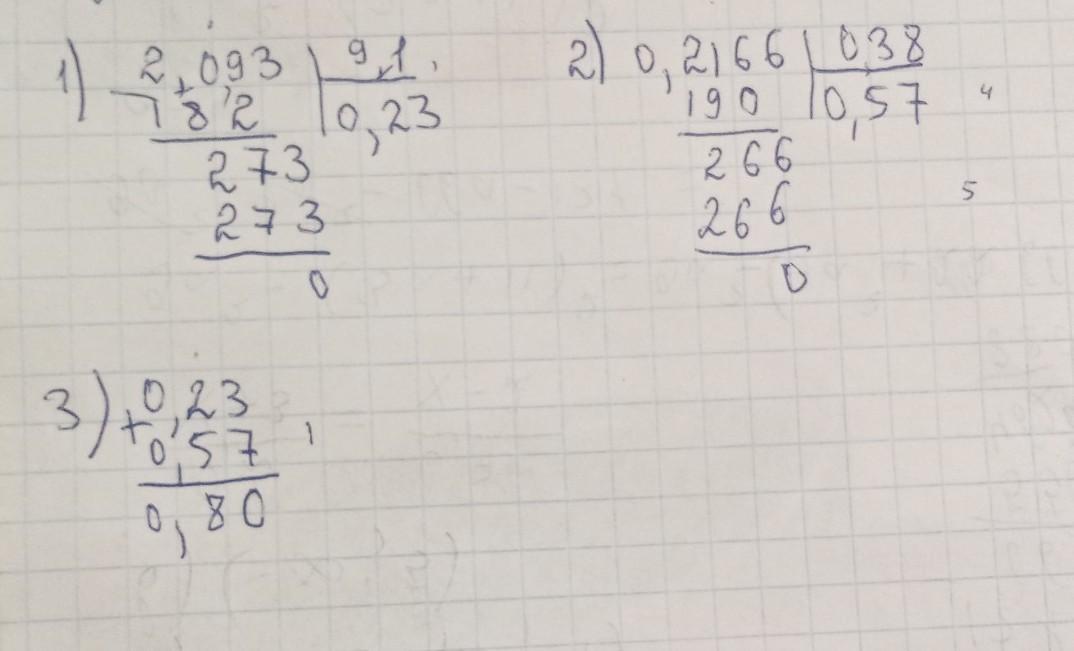 1) 2,093 | 9,1
182 | 0,23
273
273
0
2) 0,2166 | 0,38
190 | 0,57
266
266
0
3) + 0,23
0,57
0,80